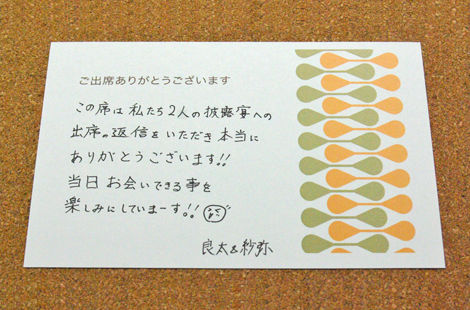 ご出席ありがとうございます
この席は私たち2人の披露宴への
出席の返信をいただき本当に
ありがとうございます!!
当日お会いできる事を
楽しみにしていまーす!!
良太&紗弥